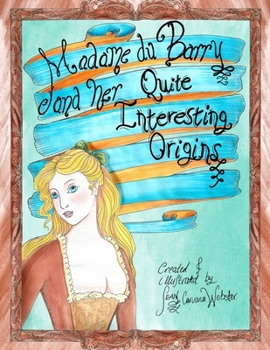 Madame du Barry
and her Quite
Interesting
Origins
Created &
illustrated by
Webster